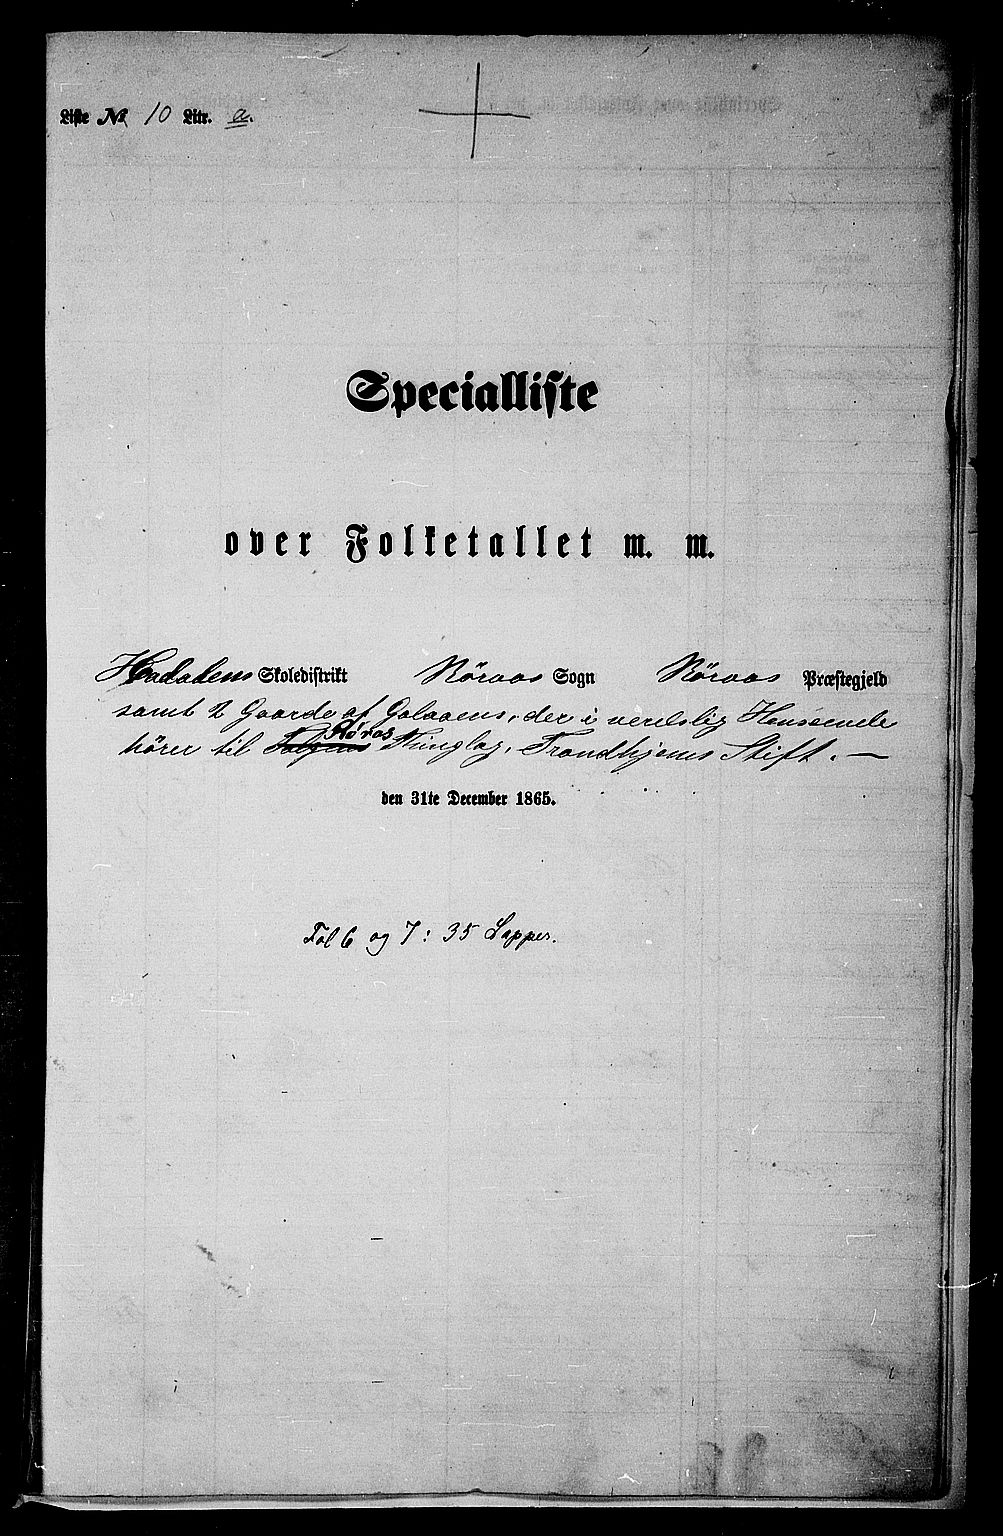 Liste № 10 Litr. a.
Specialliste
over Folketallet m. m.
Hadalens Skoledistrikt Röraas Sogn Röraas Præstegjeld
samt 2 Gaarde af Galaaens, der i verdslig Henseende
Røros
hörer til Tolgens Thinglag, Trondhjems Stift. —
den 31te December 1865.
Fol 6 og 7: 35 Lapper.